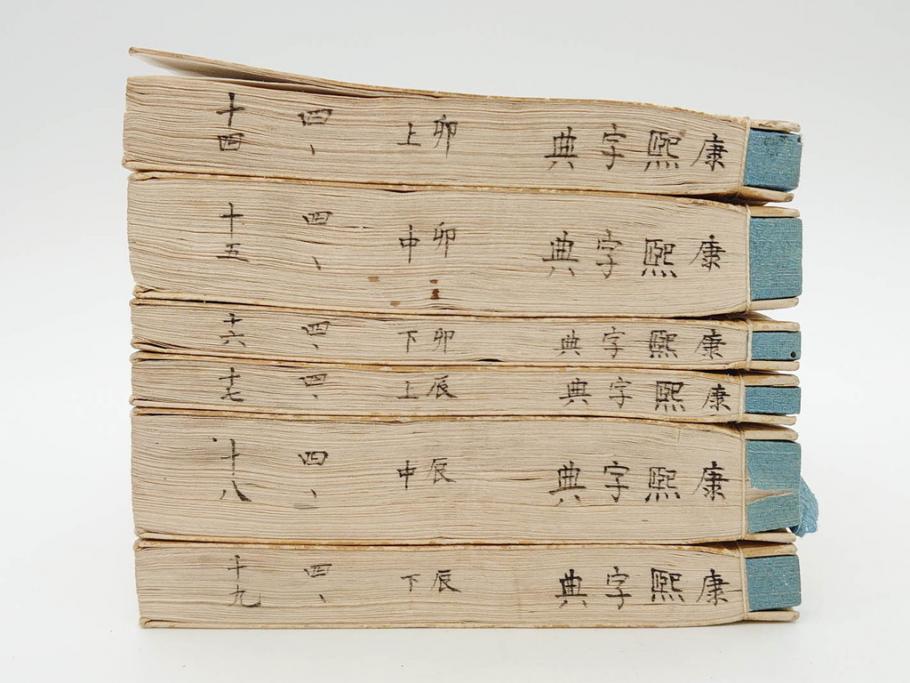 康熙字典 卯上 四、 十四
康熙字典 卯中 四、 十五
康熙字典 卯下 四、 十六
康熙字典 辰上 四、 十七
康熙字典 辰中 四、 十八
康熙字典 辰下 四、 十九